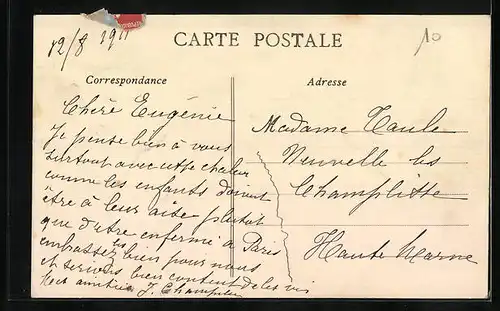 12/8 1911
CARTE POSTALE
10
Correspondance
Chère Eugénie
Je pense bien à vous
surtout avec cette chaleur
comme les enfants doivent
être à leur aise plutôt
que d'être enfermé à Paris
embrassez les bien pour nous
et serions bien content de les
J. Champlin
Adresse
Madame Taule
Neuvelle les
Champlitte
Haute Marne